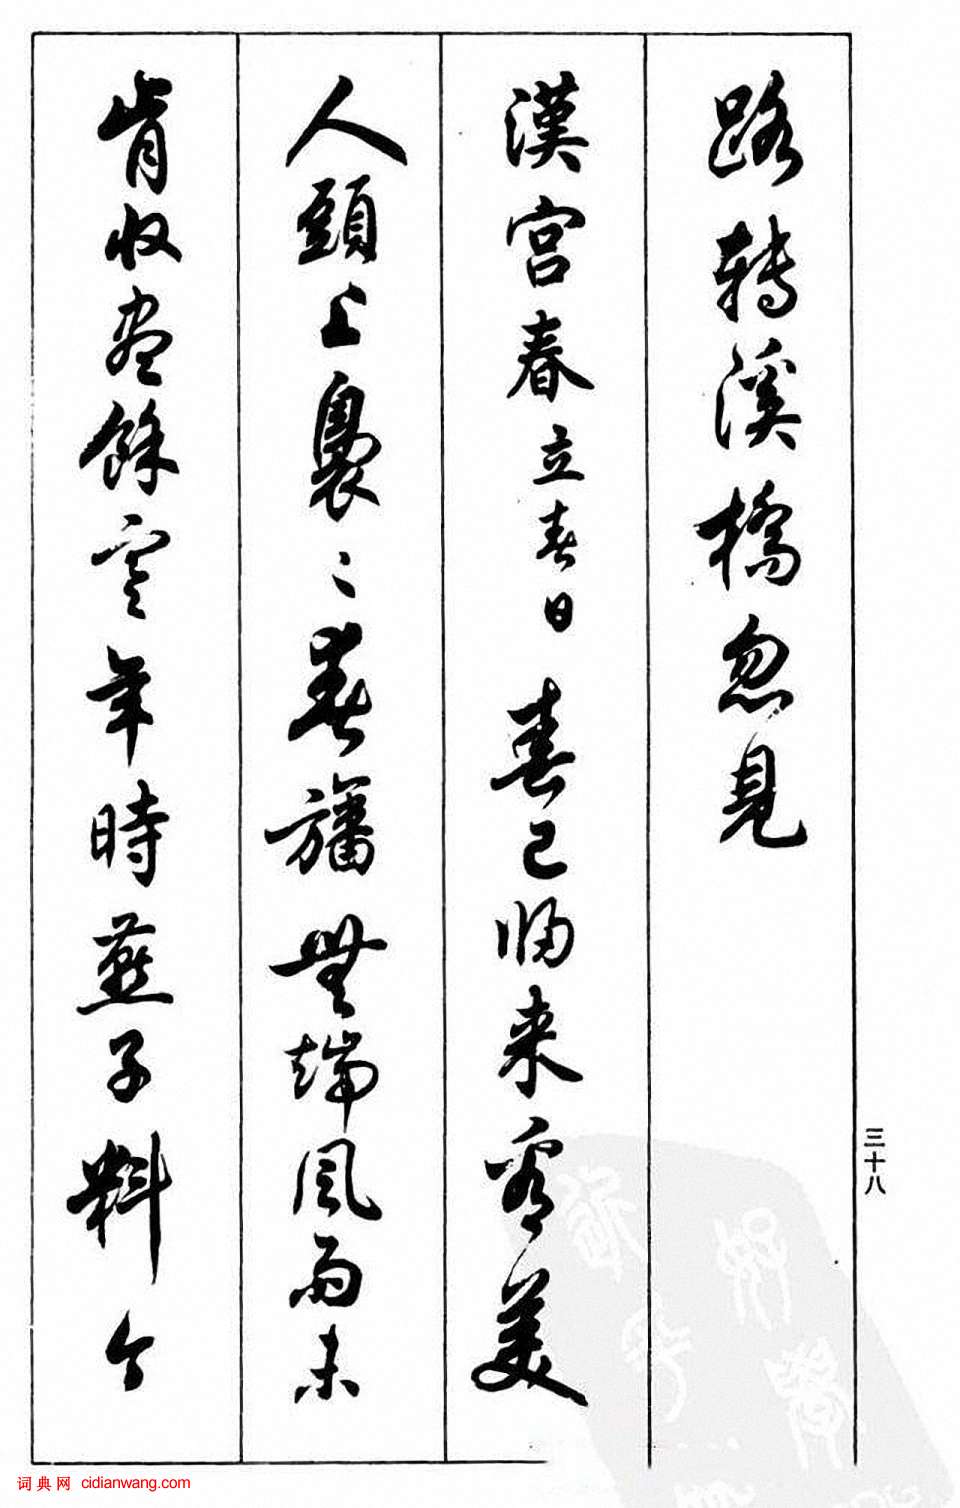 路轉溪橋忽見
漢宮春立春日春已归来看美
人頭上裊〻春旛無端風雨未
肯收盡餘寒年時燕子料今
三十八
词典网 cidianwang.com